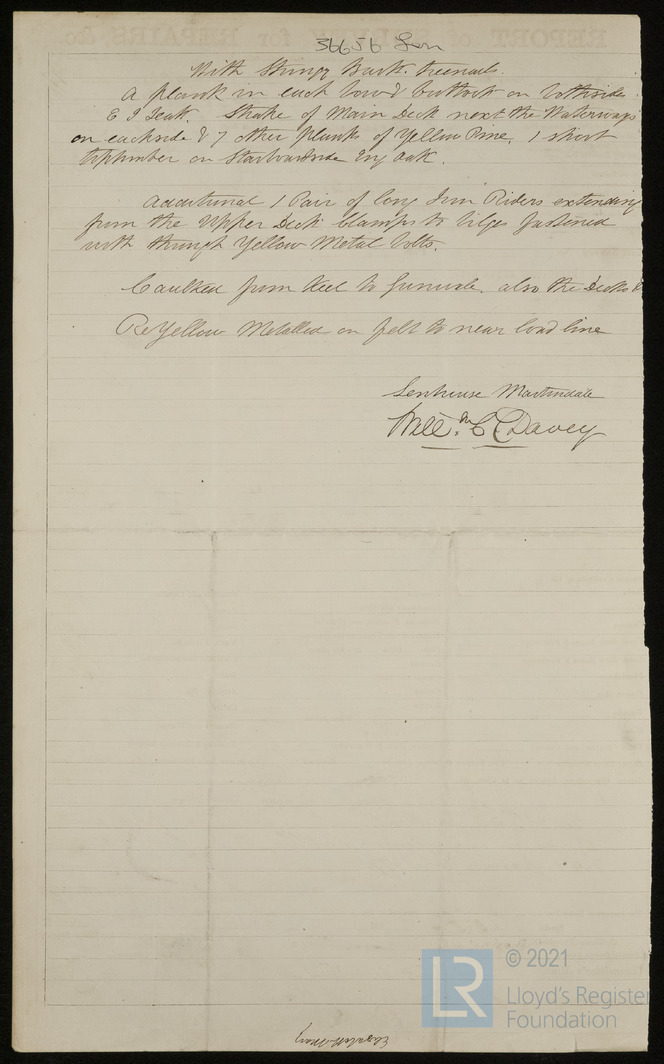 36656 Lon
With Stringy Bark treenails.
A plank in each bow & buttock on bothside
E I Teak. Strake of Main Deck next the Waterways
on eachside & 7 other planks of Yellow Pine, 1 short
toptimber on Starboardside Eng Oak.
Additional 1 Pair of long Iron Riders extending
from the Upper Deck Clamps to bilges fastened
with through Yellow Metal bolts.
Caulked from Keel to Gunwale, also the Decks &
ReYellow Metalled on felt to near load line
Senhouse Martindale
Willm. C C Davey
© 2021
LR
Lloyd's Register
Foundation